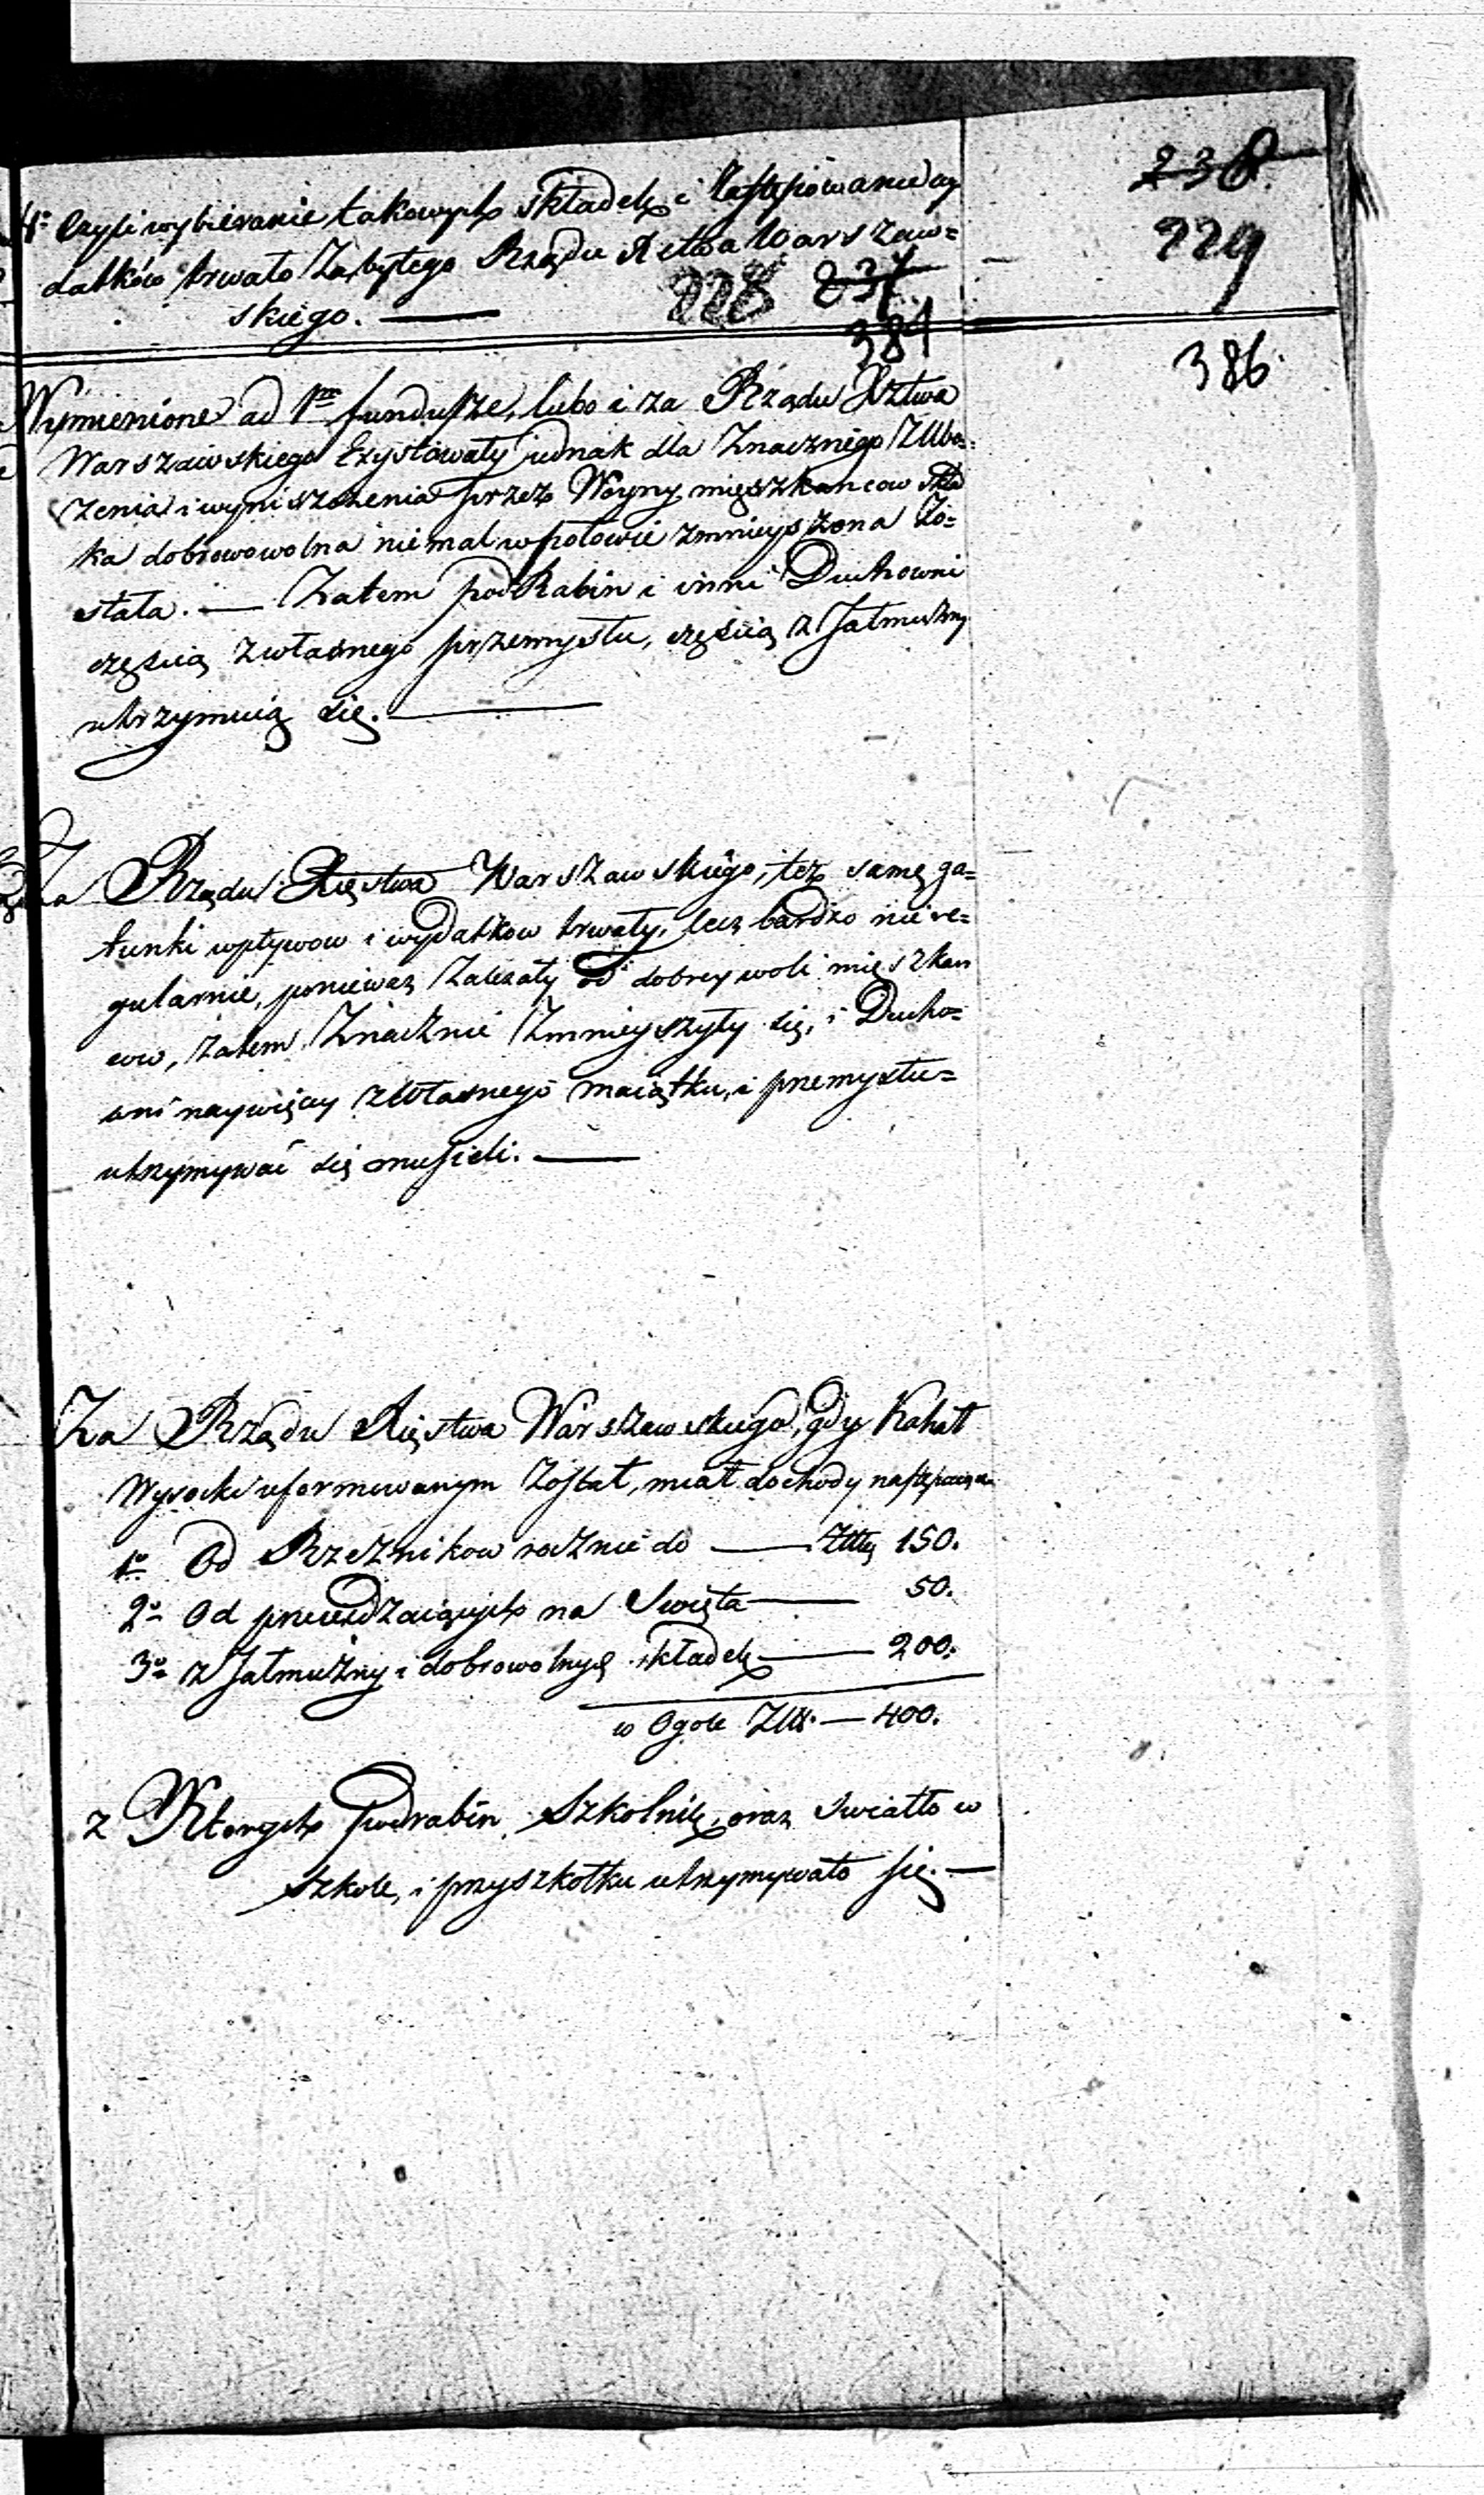 4º Czyli wybieranie takowych składek i zastępowanie wy
datków trwało za byłego Rządu Xstwa Warszaw=
skiego. —
228 237
384
238
229
386.
Wymienione ad 1m fundusze, lubo i za Rządu Xsztwa
Warszawskiego Exystowały jednak dla Znacznego Zubo=
żenia i wyniszczenia przez Woyny mięszkancow skła
ka dobrowowolna niemal w połowie zmnieyszona Zo=
stała. — Zatem podRabin i inni Duchowni
częścią z własnego przemysłu, częścią z Jałmużny
utrzymuią się. —
Za Rządu Xięstwa Warszawskiego, też samę ga=
tunki wpływow i wydatkow trwały, lecz bardzo niere=
gularnie, ponieważ Zależały od dobrey woli mięszkan
cow, Zatem Znacznie Zmnieyszyły się, i Ducho=
wni naywięcy z własnego maiątku, i przemysłu=
utrzymywać się musieli. —
Za Rządu Xięstwa Warszawskiego, gdy Kahał
Wysocki uformowanym Został, miał dochody następuiące
1º Od Rzeznikow rocznie do — Złłtp 150.
2º Od przewdzaiących na Święta — 50.
3º z Jałmużny i dobrowolnyc składek — 200.
w Ogole Złł. — 400.
z Ktorych podrabin, Szkolnik, oraz Swiatło w
Szkole, i przyszkołku utrzymywało się. —